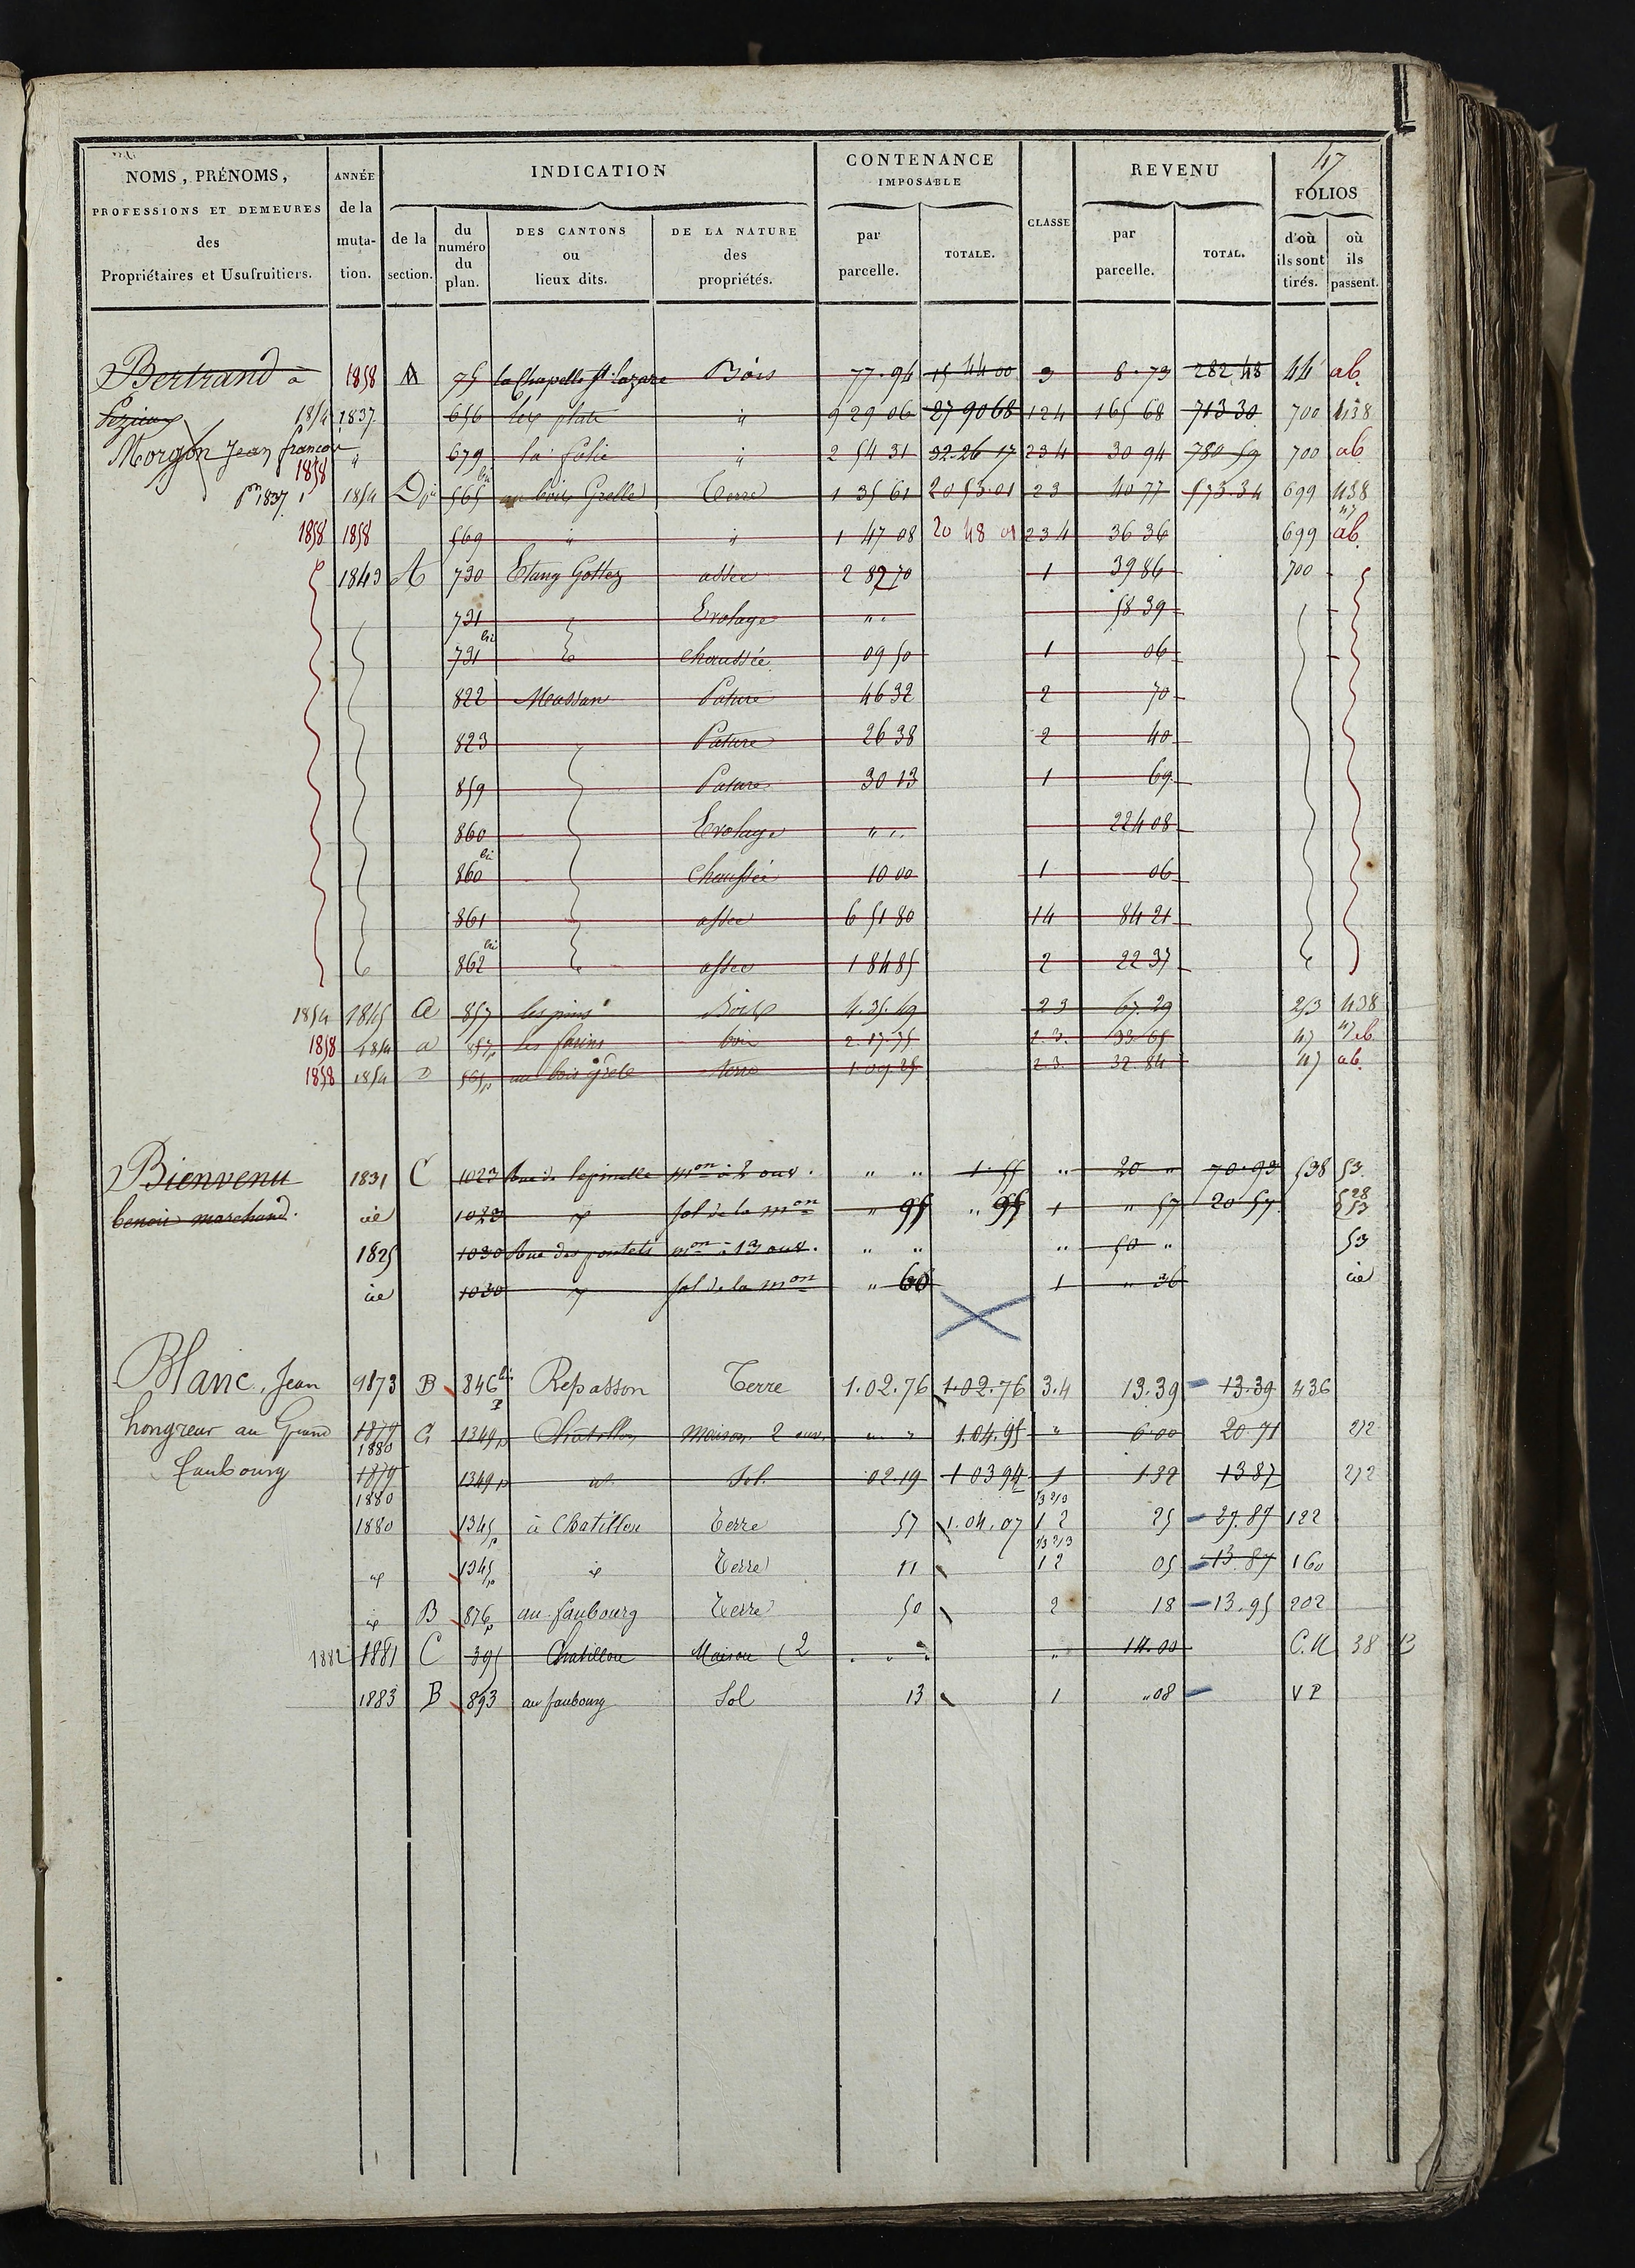 47
NOMS, PRÉNOMS, PROFESSIONS ET DEMEURES des Propriétaires et Usufruitiers.
ANNÉE de la muta- tion.
INDICATION
de la section.
du numéro du plan.
DES CANTONS ou lieux dits.
DE LA NATURE des propriétés.
CONTENANCE IMPOSABLE
par parcelle.
TOTALE.
CLASSE
REVENU
par parcelle.
TOTAL.
FOLIOS
d'où ils sont tirés.
où ils passent.
Bertrand à 1858 75 la Chapelle St Lazare Bois 77.94 15 44 00 3 8.73 282 48 44 ab.
1854 1837 656 les plats " 9 29 06 27 90 68 124 165 68 713 30 700 438
Morgon Jean françois " 679 la folie " 2 54 31 32.26 17 234 30 94 780 59 700 ab
1858
1837 1854 D 565 bis au bois Grelle Terre 1 35 61 20 53.01 23 40 77 573.34 699 438
47
1858 1858 569 " " 1 47 08 20 48 01 234 36 36 699 ab.
1843 A 730 Etang Gottez assec 2 87 70 1 39 86 700
731 Evolage " " 58 39
731 bis chaussée 09 50 1 06
822 Moussan Pature 46 32 2 70
823 Pature 26 38 2 40
859 Pature 30 13 1 69
860 Evolage " " 224 08
860 bis Chaussée 10 00 1 06
861 assec 6 51 80 14 84 21
862 bis assec 1 84 85 2 22 37
1854 1845 a 857 les pins Bois 4.35.49 23 67.29 253 438
1858 1854 a 857p les bois 2.17.75 2.3. 33.65 47 ab
1858 1854 D 565p au bois grele terre 1.09.25 2.3. 32.84 47 ab.
Bienvenu 1831 C 1023 Rue de lepinette mon à 2 ouv. " " 1.55 " 20 " 70.93 538 53
benoit marchand. id 1023 id sol de la mon " 95 " 95 1 " 57 20 57 528 53
1825 1030 Rue des mon à 13 ouv. " " " 50 " 53
id 1030 id sol de la mon " 60 1 " 36 id
Blanc, Jean 1873 B 846 bis p Repasson Terre 1.02.76 1.02.76 3.4 13.39 13.39 436
hongreur au Grand 1879 1880 C 1349p Chatillon Maison 2 ouv. " " 1.04.95 " 6.00 20 71 212
Faubourg 1879 1880 1349p id Sol 02.19 1 03 94 1 1.32 13 87 212
1880 1345p à Chatillon Terre 57 1.04.07 1/3 2/3 1 2 25 27.87 122
id 1345p id Terre 11 1/3 2/3 1 2 05 13.87 160
id B 876p au faubourg Terre 50 2 18 13.95 202
1882 1881 C 395 Chatillon Maison (2 " " " 14.00 C.N 38 B
1883 B 893 au faubourg Sol 13 1 "08 V P